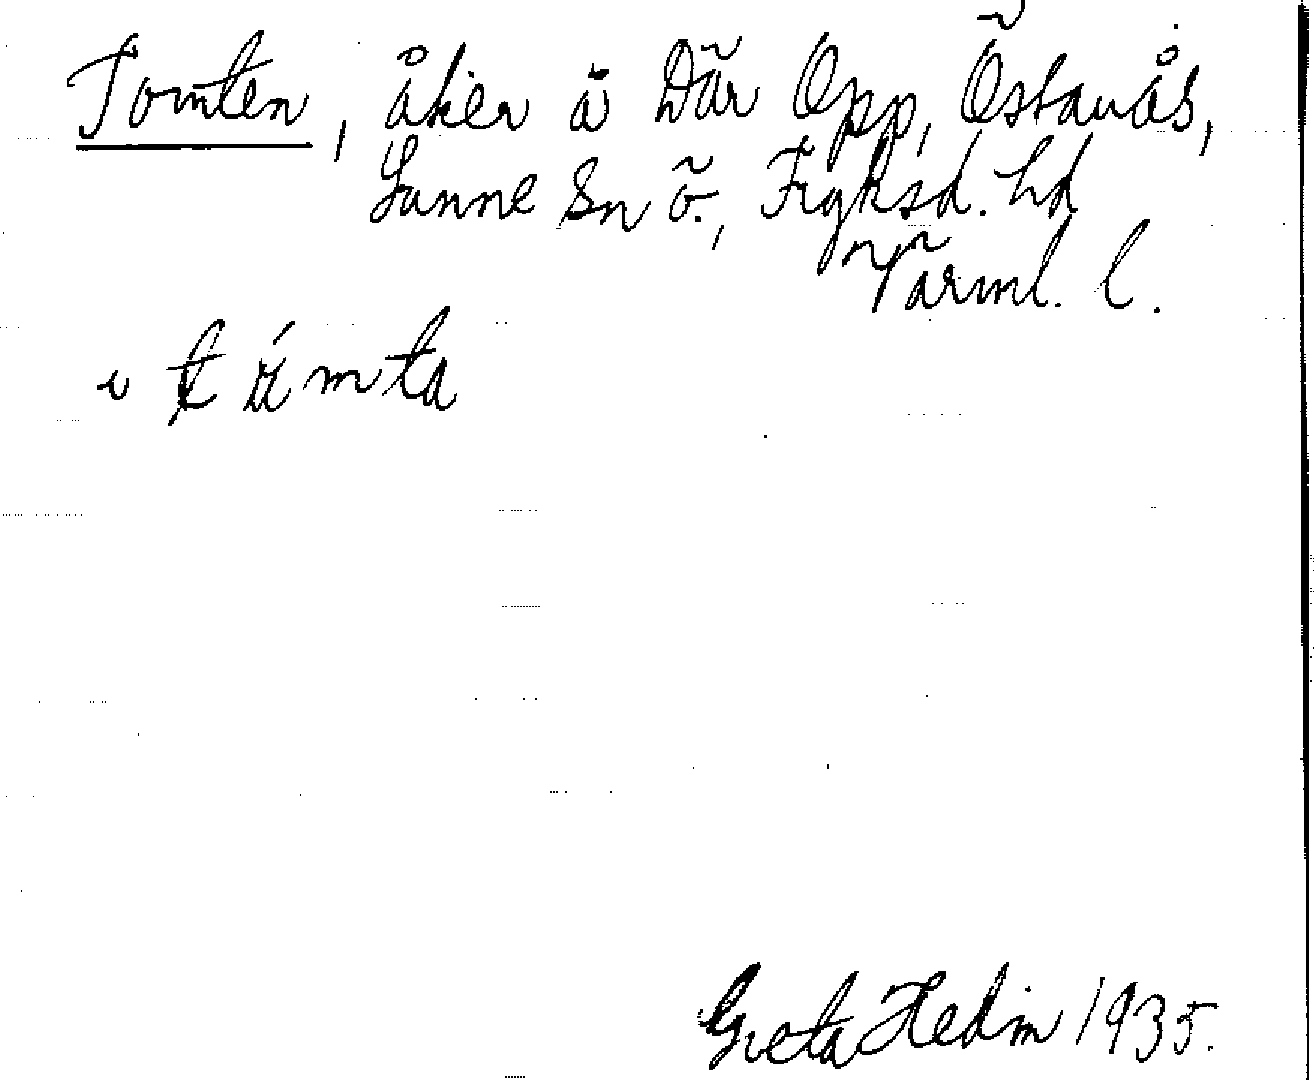 Tomten, åker å Där Opp, Östanås,
Sunne Sn ö., Fryksd. hd
Värml. l.
Greta Hedin 1935.